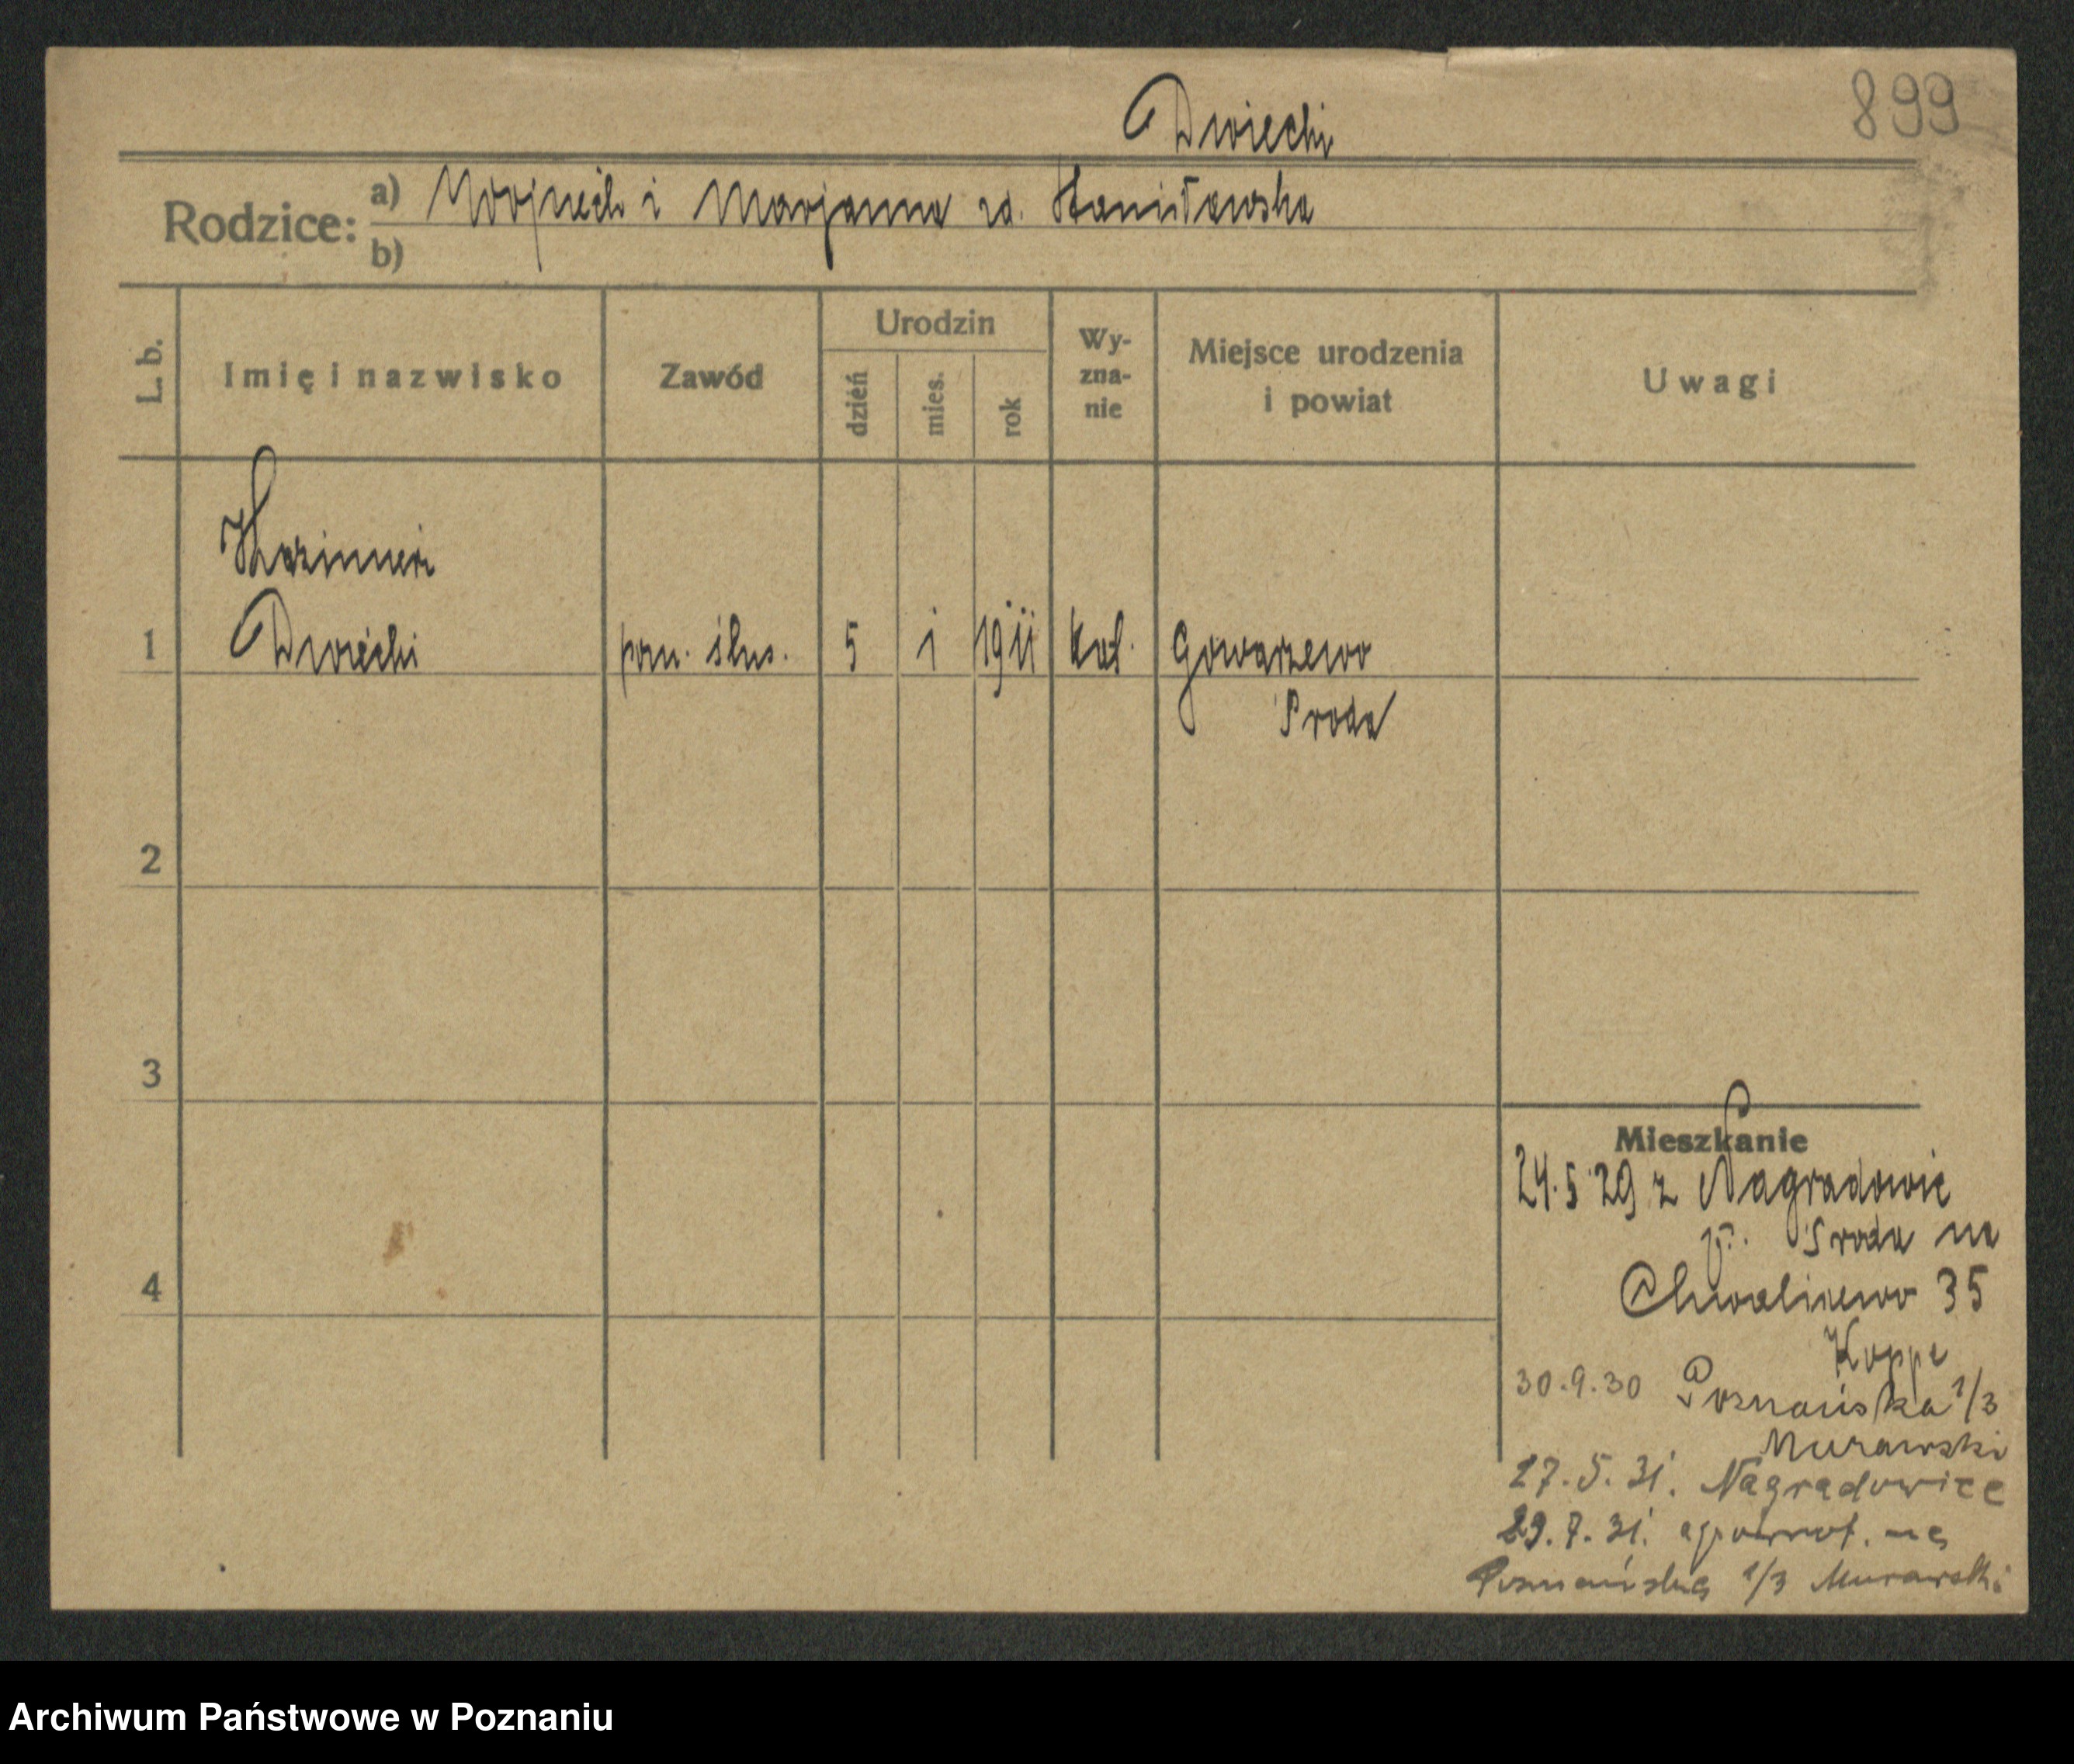 899
Dwiecki
Rodzice: a) Wojciech i Marjanna zd. Stanisławska
b)
L. b. Imię i nazwisko Zawód Urodzin dzień mies. rok Wyzna-nie Miejsce urodzenia i powiat Uwagi
Kazimierz
1 Dwiecki pom. ślus. 5 1 1911 kat. Gowarzewo
Środa
2
3
4
Mieszkanie
24.5 29 z Nagradowic
p. Środa na
Chwaliszewo 35
Koppe
30.9.30 Poznańska 1/3
Murawski
27.5.31. Nagradowice
29.7.31. z powrot. na
Poznańską 1/3 Murawski
Archiwum Państwowe w Poznaniu